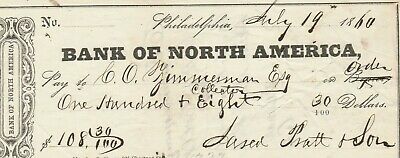 No. Philadelphia, July 19 1860
BANK OF NORTH AMERICA,
BANK OF NORTH AMERICA
Pay to C. O. Zimmerman Esq or Order
Collector
One Hundred & Eight 30/100 Dollars.
$ 108 30/100 Jared Pratt & Son